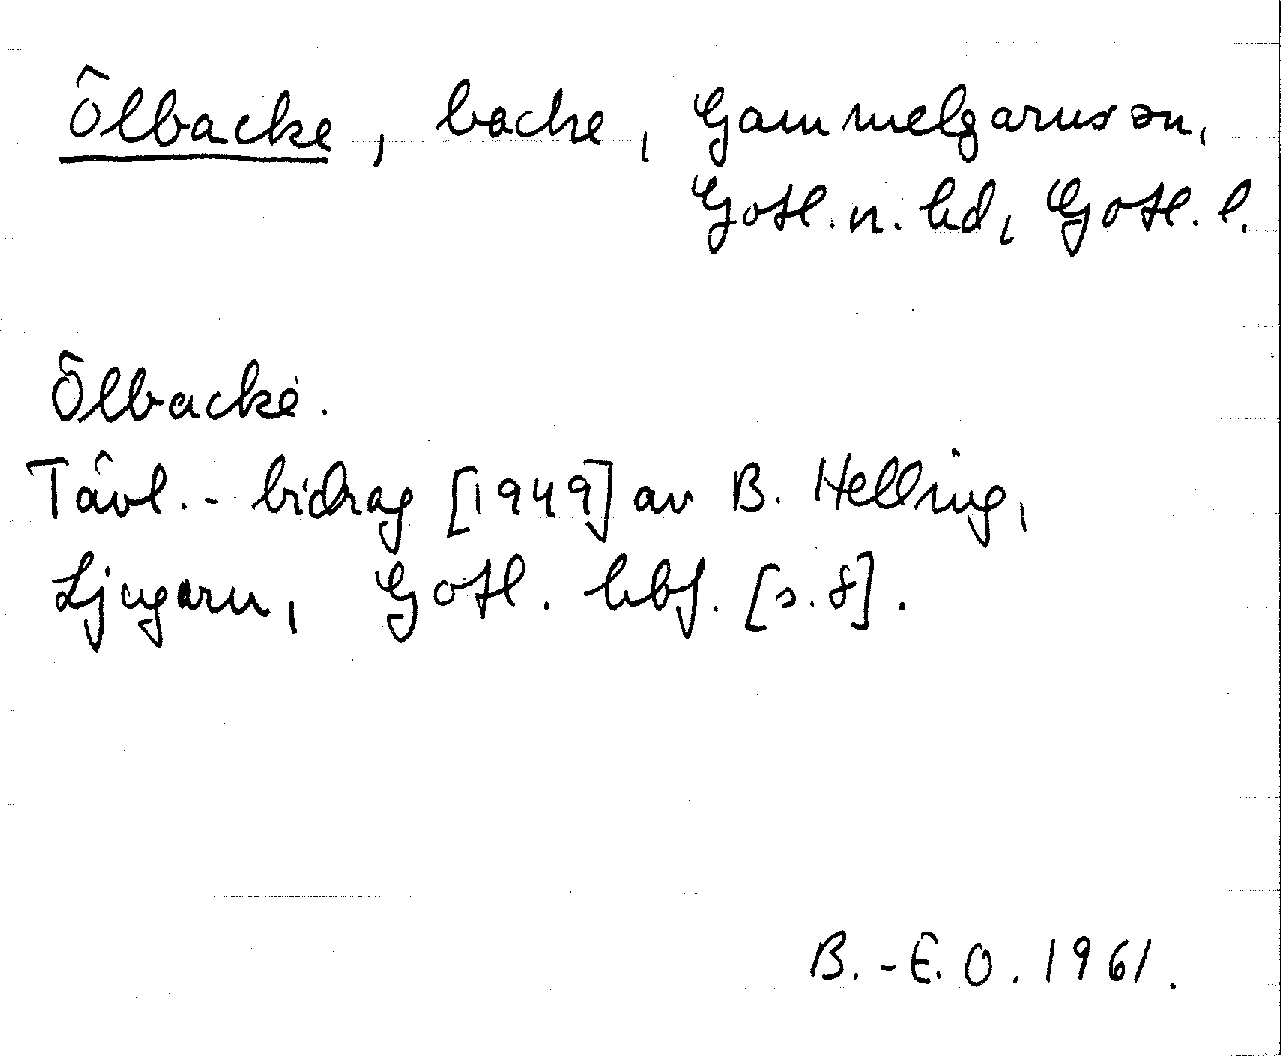 Ölbacke, backe, Gammelgarns sn,
Gotl. n. hd, Gotl. l.
Ölbacke.
Tävl.-bidrag [1949] av B. Helling,
Ljugarn, Gotl. hbf. [s. 8].
B.-E. O. 1961.